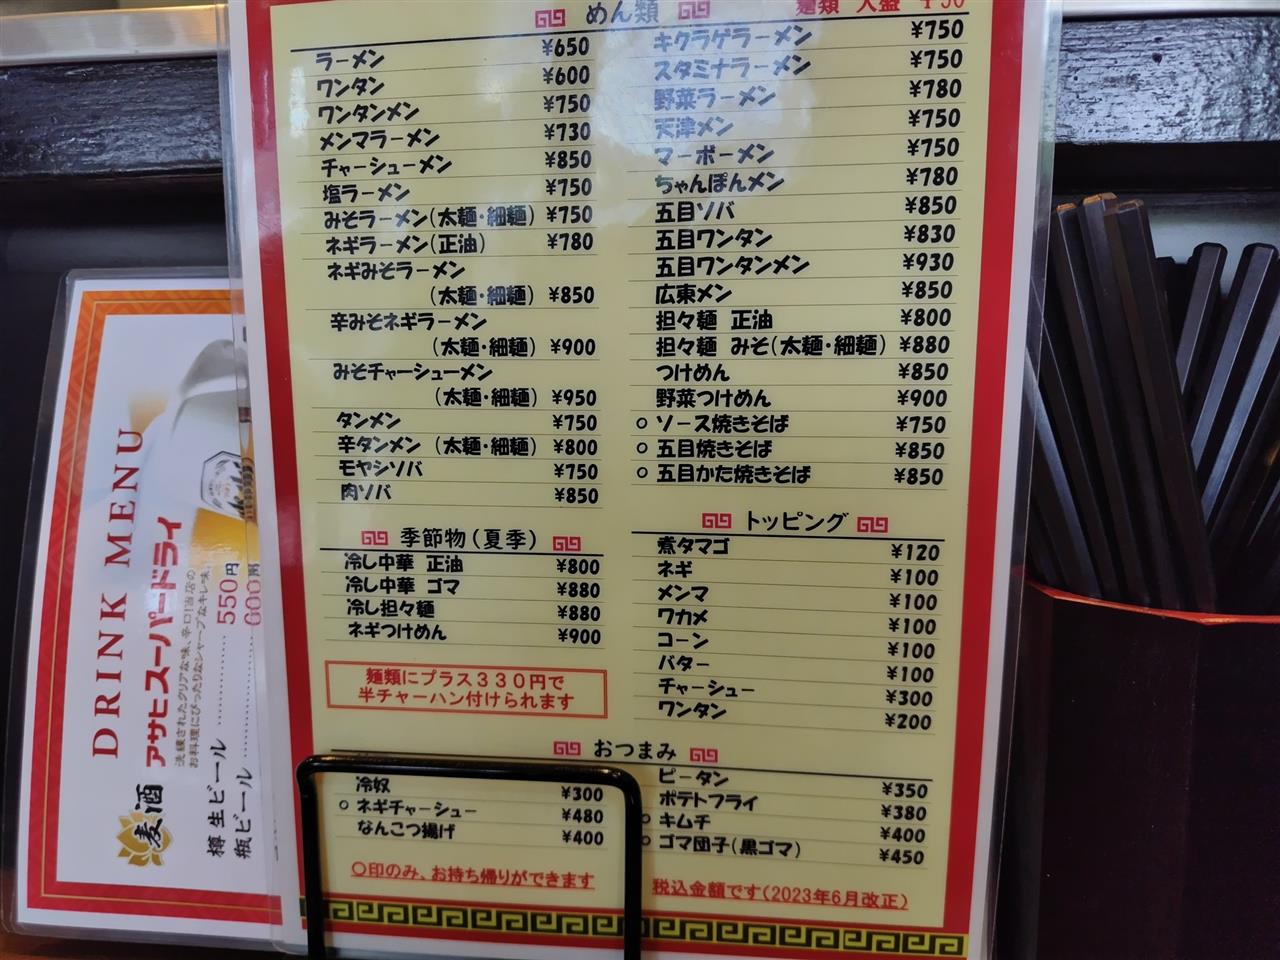 めん類
麺類 大盛 ¥50
ラーメン ¥650
ワンタン ¥600
ワンタンメン ¥750
メンマラーメン ¥730
チャーシューメン ¥850
塩ラーメン ¥750
みそラーメン(太麺・細麺) ¥750
ネギラーメン(正油) ¥780
ネギみそラーメン
(太麺・細麺) ¥850
辛みそネギラーメン
(太麺・細麺) ¥900
みそチャーシューメン
(太麺・細麺) ¥950
タンメン ¥750
辛タンメン (太麺・細麺) ¥800
モヤシソバ ¥750
肉ソバ ¥850
キクラゲラーメン ¥750
スタミナラーメン ¥750
野菜ラーメン ¥780
天津メン ¥750
マーボーメン ¥750
ちゃんぽんメン ¥780
五目ソバ ¥850
五目ワンタン ¥830
五目ワンタンメン ¥930
広東メン ¥850
担々麺 正油 ¥800
担々麺 みそ(太麺・細麺) ¥880
つけめん ¥850
野菜つけめん ¥900
○ ソース焼きそば ¥750
○ 五目焼きそば ¥850
○ 五目かた焼きそば ¥850
季節物(夏季)
冷し中華 正油 ¥800
冷し中華 ゴマ ¥880
冷し担々麺 ¥880
ネギつけめん ¥900
麺類にプラス330円で
半チャーハン付けられます
トッピング
煮タマゴ ¥120
ネギ ¥100
メンマ ¥100
ワカメ ¥100
コーン ¥100
バター ¥100
チャーシュー ¥300
ワンタン ¥200
おつまみ
冷奴 ¥300
○ ネギチャーシュー ¥480
なんこつ揚げ ¥400
ピータン ¥350
ポテトフライ ¥380
○ キムチ ¥400
○ ゴマ団子(黒ゴマ) ¥450
○印のみ、お持ち帰りができます
税込金額です(2023年6月改正)
DRINK MENU
麦酒
アサヒスーパードライ
洗練されたクリアな味、辛口!当店の
お料理にぴったりなシャープなキレ味。
樽生ビール 550円
瓶ビール 600円